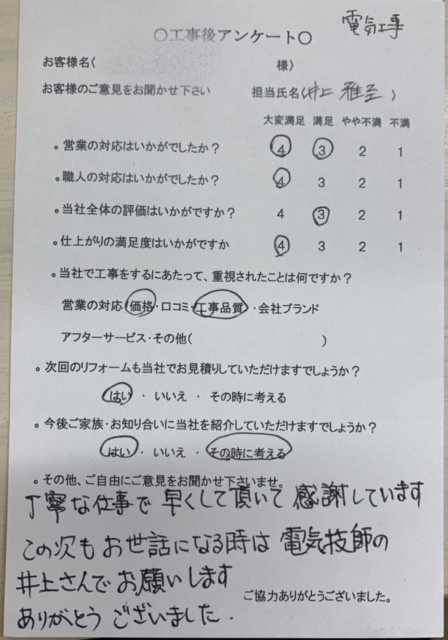 電気工事
〇工事後アンケート〇
お客様名( 様)
お客様のご意見をお聞かせ下さい 担当氏名(井上 雅至)
大変満足 満足 やや不満 不満
。営業の対応はいかがでしたか? 4 3 2 1
。職人の対応はいかがでしたか? 4 3 2 1
。当社全体の評価はいかがですか? 4 3 2 1
。仕上がりの満足度はいかがですか 4 3 2 1
。当社で工事をするにあたって、重視されたことは何ですか?
営業の対応・価格・口コミ・工事品質・会社ブランド
アフターサービス・その他( )
。次回のリフォームも当社でお見積りしていただけますでしょうか?
はい ・ いいえ ・ その時に考える
。今後ご家族・お知り合いに当社を紹介していただけますでしょうか?
はい ・ いいえ ・ その時に考える
。その他、ご自由にご意見をお聞かせ下さいませ。
丁寧な仕事で 早くして頂いて 感謝しています
この次も お世話になる時は 電気技師の
井上さんで お願いします
ご協力ありがとうございました。
ありがとう ございました.